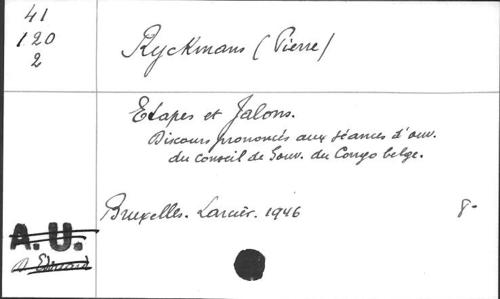 41
120
2
Ryckmans (Pierre)
Etapes et Jalons.
Discours prononcés aux séances d'ouv.
du conseil de Gouv. du Congo belge.
Bruxelles. Larcier. 1946 8-
A. U.